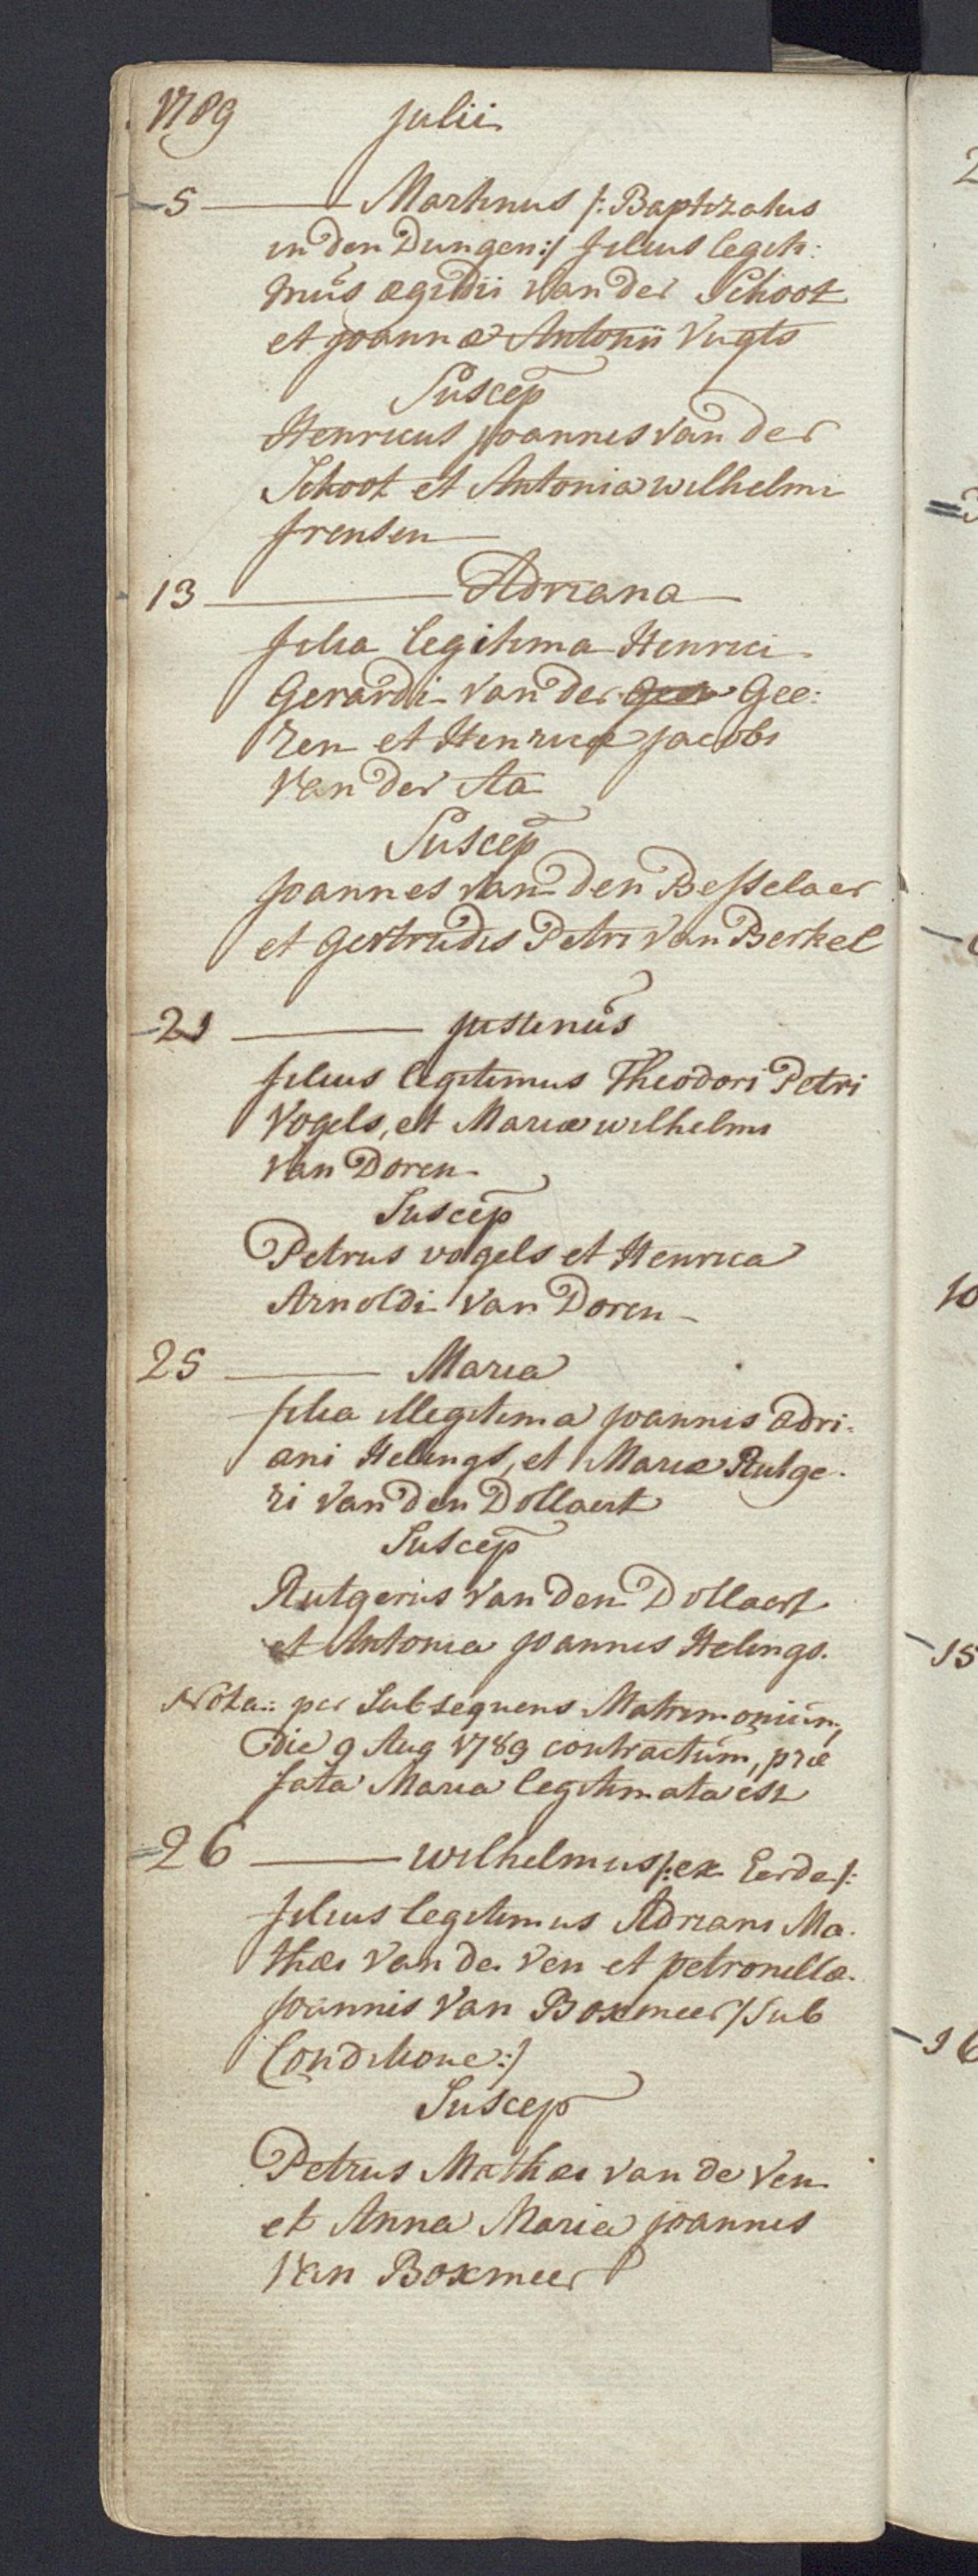 1789 Julii
5 — Martinus /: Baptizatus
in den Dungen :/ filius legiti:
mus Ægidii van der Schoot
et Joannæ Antonii Vugts
Suscep
Henricus Joannis van der
Schoot et Antonia Wilhelmi
frensen
13 — Adriana
filia legitima Henrici
Gerardi van der Gee:
ren et Henricæ Jacobi
van der Aa
Suscep
Joannes van den Besselaer
et Gertrudis Petri van Berkel
21 — Justinus
filius legitimus Theodori Petri
Vogels, et Mariæ Wilhelmi
van Doren
Suscep
Petrus Vogels et Henrica
Arnoldi van Doren
25 — Maria
filia illegitima Joannis Adri-
ani Helings, et Mariæ Rutge-
ri van den Dollaert
Suscep
Rutgerus van den Dollaert
et Antonia Joannis Helings.
Nota: per subsequens Matrimonium,
die 9 Aug 1789 contractum, præ
fata Maria legitimata est
26 — Wilhelmus /: ex Eerde /:
filius legitimus Adriani Ma-
thæi van de Ven et Petronillæ
Joannis van Boxmeer /: sub
Conditione :/
Suscep
Petrus Mathæi van de Ven
et Anna Maria Joannis
van Boxmeer
10
15
16